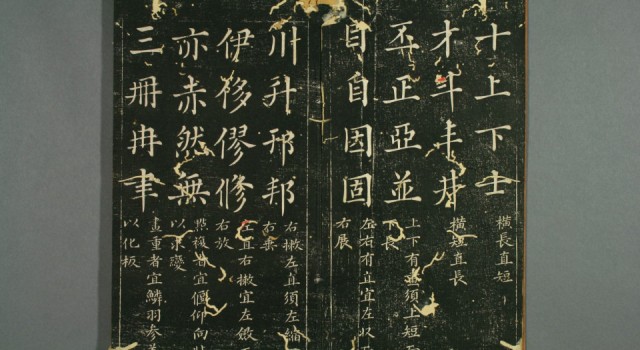 十上下士
橫長直短
才斗丰井
橫短直長
丕正亞並
上下有畫須上短
下長
目自因固
左右有直宜左收
右展
川升邗邦
右撇左直須左縮
右垂
伊移僇修
左直右撇宜左斂
右放
亦赤然無
複者宜偃仰向
以求變
三冊冉聿
畫重者宜鱗羽參差
以化板